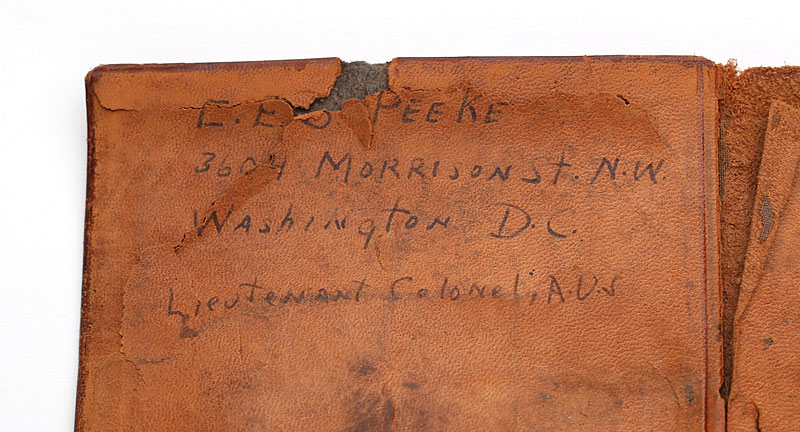 E. E. S PEEKE
3604 MORRISON St. N.W.
WAshINgtoN D.C.
LieuteNANt Colonel, A.U.S